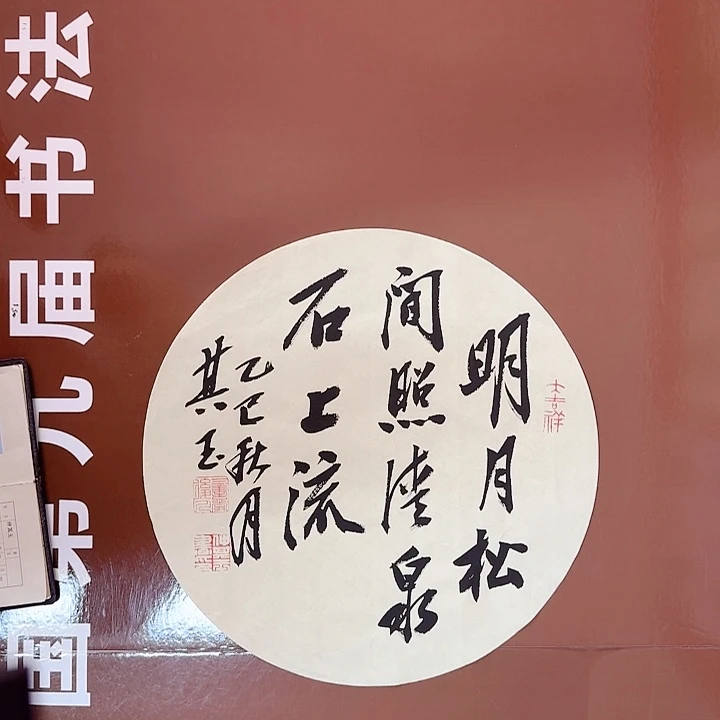 国第九届书法
大吉祥
明月松
间照清泉
石上流
乙巳秋月
其玉